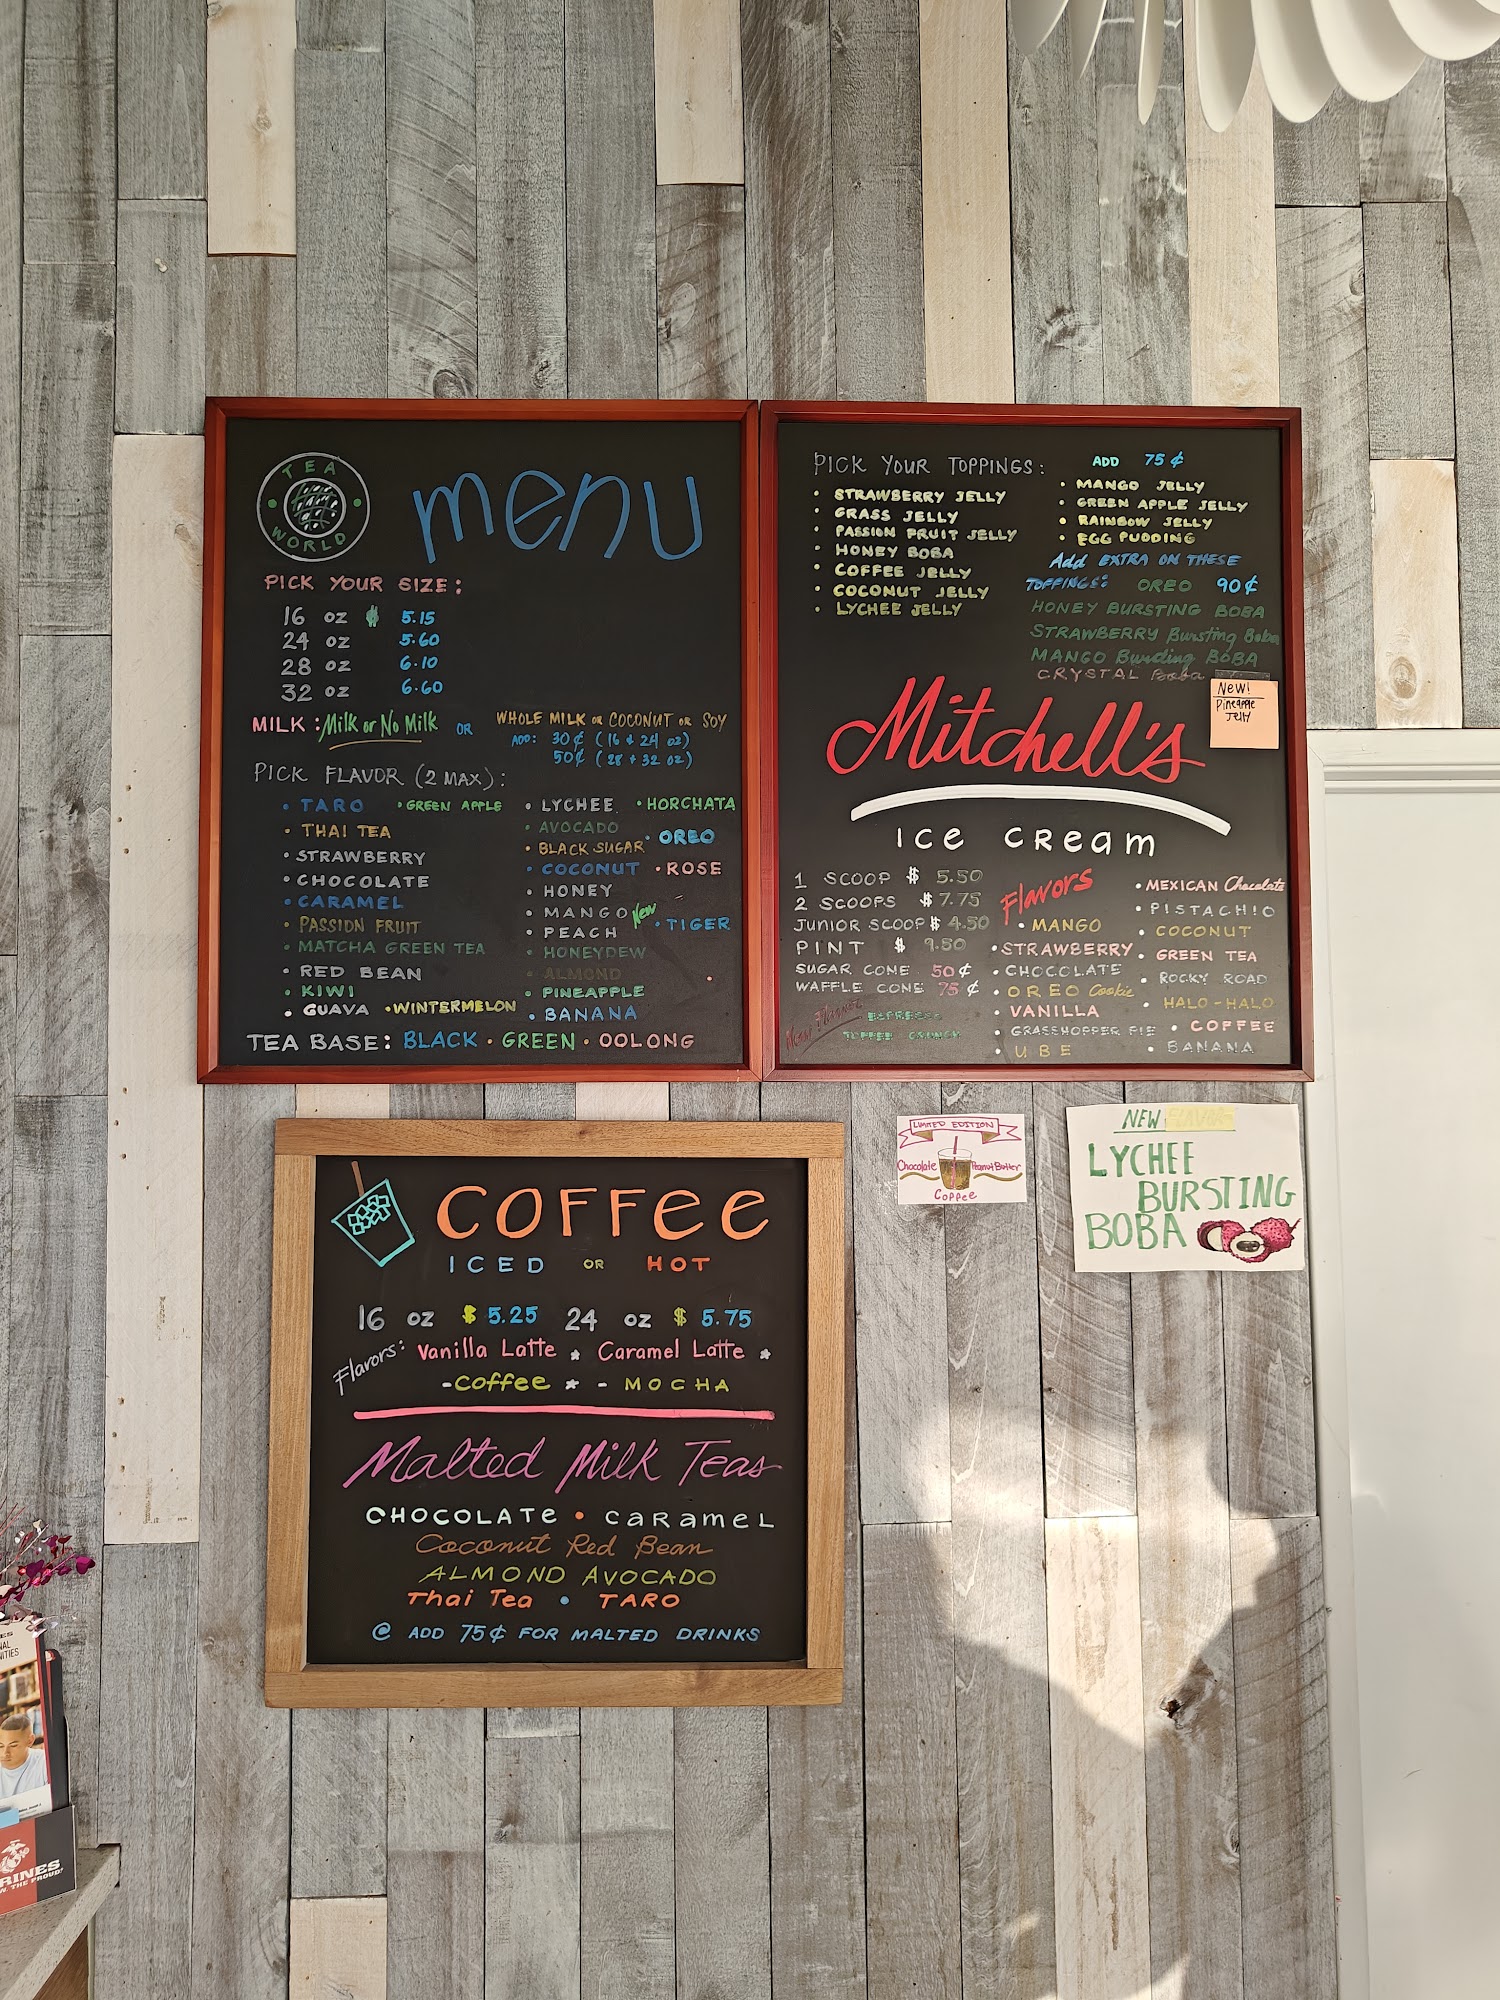 TEA
WORLD
menu
PICK YOUR SIZE:
16 oz $ 5.15
24 oz 5.60
28 oz 6.10
32 oz 6.60
MILK: Milk or No Milk OR WHOLE MILK OR COCONUT OR SOY
ADD: 30¢ (16 & 24 oz)
50¢ (28 & 32 oz)
PICK FLAVOR (2 MAX):
• TARO • GREEN APPLE
• THAI TEA
• STRAWBERRY
• CHOCOLATE
• CARAMEL
• PASSION FRUIT
• MATCHA GREEN TEA
• RED BEAN
• KIWI
• GUAVA • WINTERMELON
• LYCHEE • HORCHATA
• AVOCADO
• OREO
• BLACK SUGAR
• COCONUT • ROSE
• HONEY
• MANGO New
• TIGER
• PEACH
• HONEYDEW
• ALMOND
• PINEAPPLE
• BANANA
TEA BASE: BLACK • GREEN • OOLONG
PICK YOUR TOPPINGS: ADD 75¢
• STRAWBERRY JELLY
• GRASS JELLY
• PASSION FRUIT JELLY
• HONEY BOBA
• COFFEE JELLY
• COCONUT JELLY
• LYCHEE JELLY
• MANGO JELLY
• GREEN APPLE JELLY
• RAINBOW JELLY
• EGG PUDDING
Add EXTRA ON THESE
TOPPINGS: OREO 90¢
HONEY BURSTING BOBA
STRAWBERRY Bursting Boba
MANGO Bursting BOBA
CRYSTAL Boba
New!
Pineapple
Jelly
Mitchell's
ice cream
1 SCOOP $ 5.50
2 SCOOPS $ 7.75
JUNIOR SCOOP $ 4.50
PINT $ 9.50
SUGAR CONE 50¢
WAFFLE CONE 75¢
New Flavor
ESPRESSO
TOFFEE CRUNCH
Flavors
• MANGO
• STRAWBERRY
• CHOCOLATE
• OREO Cookie
• VANILLA
• GRASSHOPPER PIE
• UBE
• MEXICAN Chocolate
• PISTACHIO
• COCONUT
• GREEN TEA
• ROCKY ROAD
• HALO-HALO
• COFFEE
• BANANA
LIMITED EDITION
Chocolate Peanut Butter
Coffee
NEW FLAVOR
LYCHEE
BURSTING
BOBA
COFFee
ICED OR HOT
16 oz $ 5.25 24 oz $ 5.75
Flavors: Vanilla Latte * Caramel Latte *
-coffee * - MOCHA
Malted Milk Teas
CHOCOLATE • CaRameL
Coconut Red Bean
ALMOND AVOCADO
Thai Tea • TARO
@ ADD 75¢ FOR MALTED DRINKS
RINES
THE PROUD